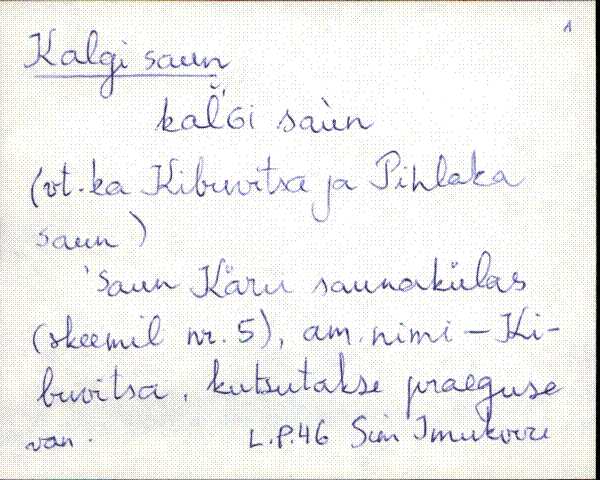 1
Kalgi saun
kal̆'Gi saùn
(vt. ka Kibuvitsa ja Pihlaka
saun)
'Saun Käru saunakülas
(skeemil nr. 5), am. nimi – Ki-
buvitsa, kutsutakse praeguse
van. L.P.46 Siiri Imukvere